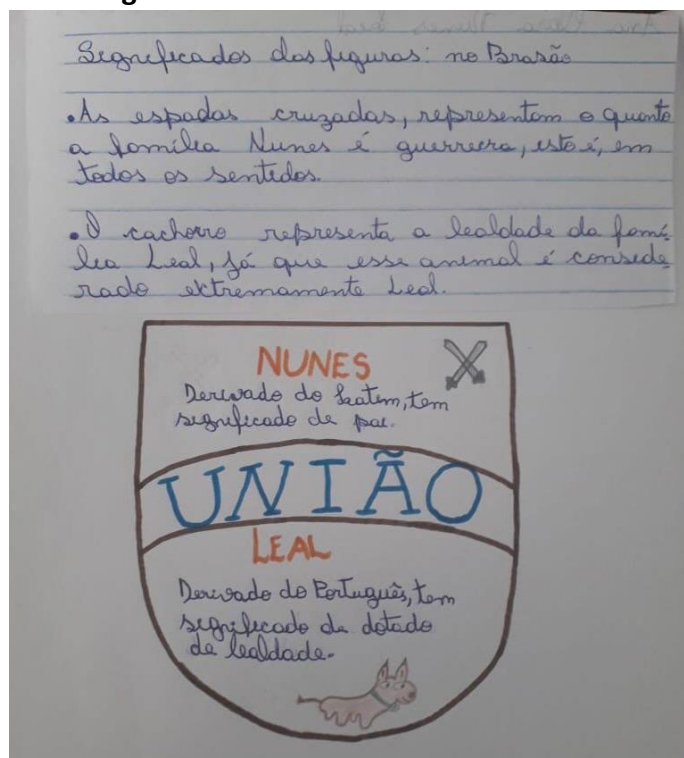 Significados das figuras: no Brasão
•As espadas cruzadas, representam o quanto
a família Nunes é guerreira, isto é, em
todos os sentidos.
•O cachorro representa a lealdade da famí-
lia Leal, já que esse animal é conside-
rado extremamente Leal.
NUNES
Derivado do Latim, tem
significado de pai.
UNIÃO
LEAL
Derivado do Português, tem
significado de dotado
de lealdade.